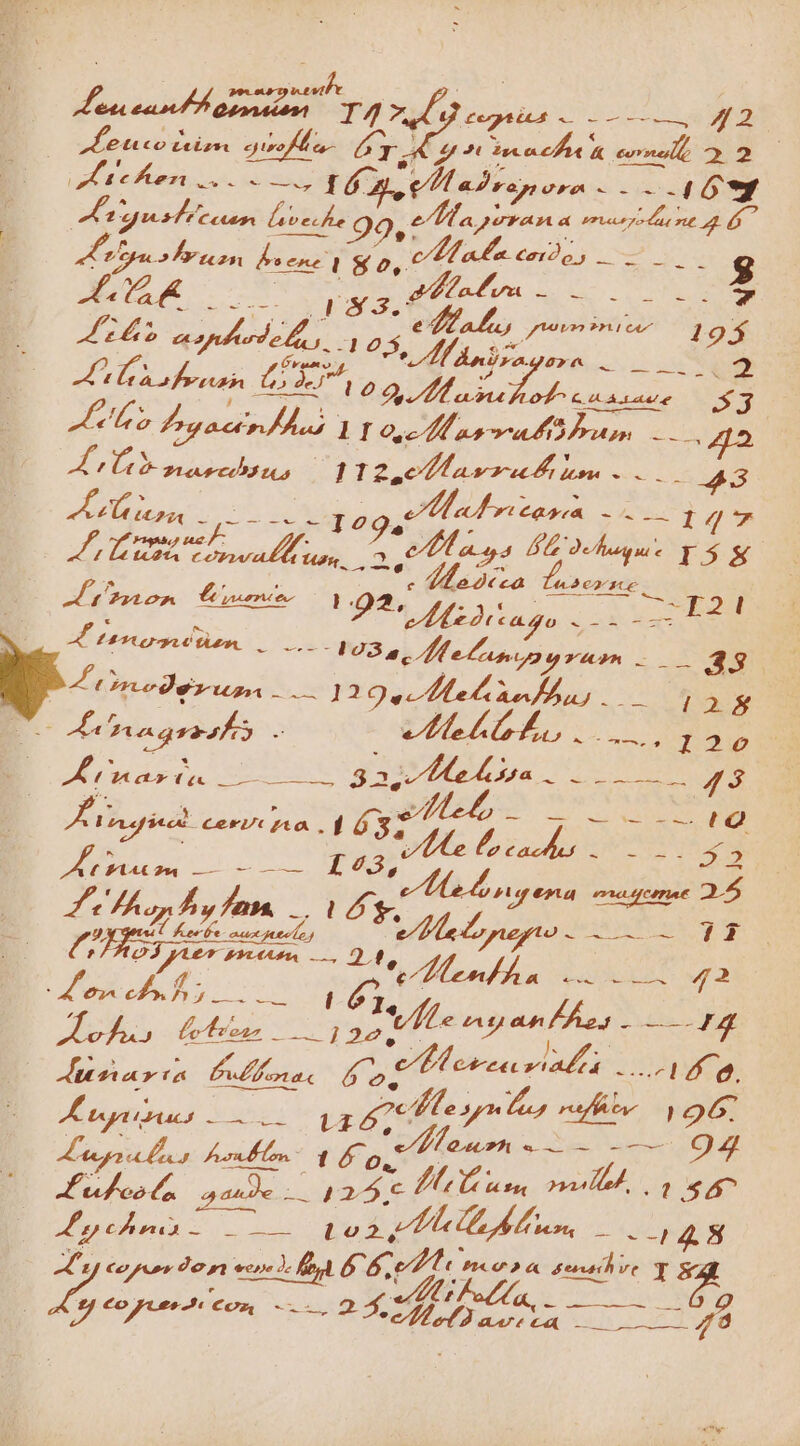 marguerite
Leucanthemum 147
Leucoium giroflier 61
Lichen 164
Ligusticum liveche 99
Ligustrum troene 180
Lilak 183
Lilio asphodelus 105
Liliastrum lis des 109
Lilio hyacinthus 110
Lilio narcissus 112
Lilium 109
muguet
Lilium convallium 2
Limon limonier 192
Limonium 103
Limodorum 129
Linagrostis
Linaria 32
Lingua cervina 163
Linum 103
Lithophyton 165
gremil herbe aux perles
Lithospermum 21
Lonchitis 161
Lotus lotier 120
Lunaria bulbonac 60
Lupinus 116
Lupulus houblon 160
Luteola gaude 125
Lychnis 102
Lycoperdon vesse de loup 66
Lycopersicon 25
Lycopus 42
Lysimachia corneille 22
Madrepora 167
Majorana marjolaine 46
Malacoides 8
Malva 7
Malus pommier 195
Mandragora 2
Manihot cassave 53
Marrubiastrum 42
Marrubium 43
Matricaria 147
Mays Blé de turquie 158
Medica Luserne
Medicago 121
Melampyrum 33
Melianthus 128
Melilotus 120
Melissa 43
Melo 10
Melocactus 52
Melongena mayenne 25
Melopepo 11
Mentha 42
Menyanthes 14
Mercurialis 160
Mespilus neflier 196
Meum 94
Milium millet 156
Millefolium 148
Mimosa sensitive 184
Mitella 60
Moldavica 43